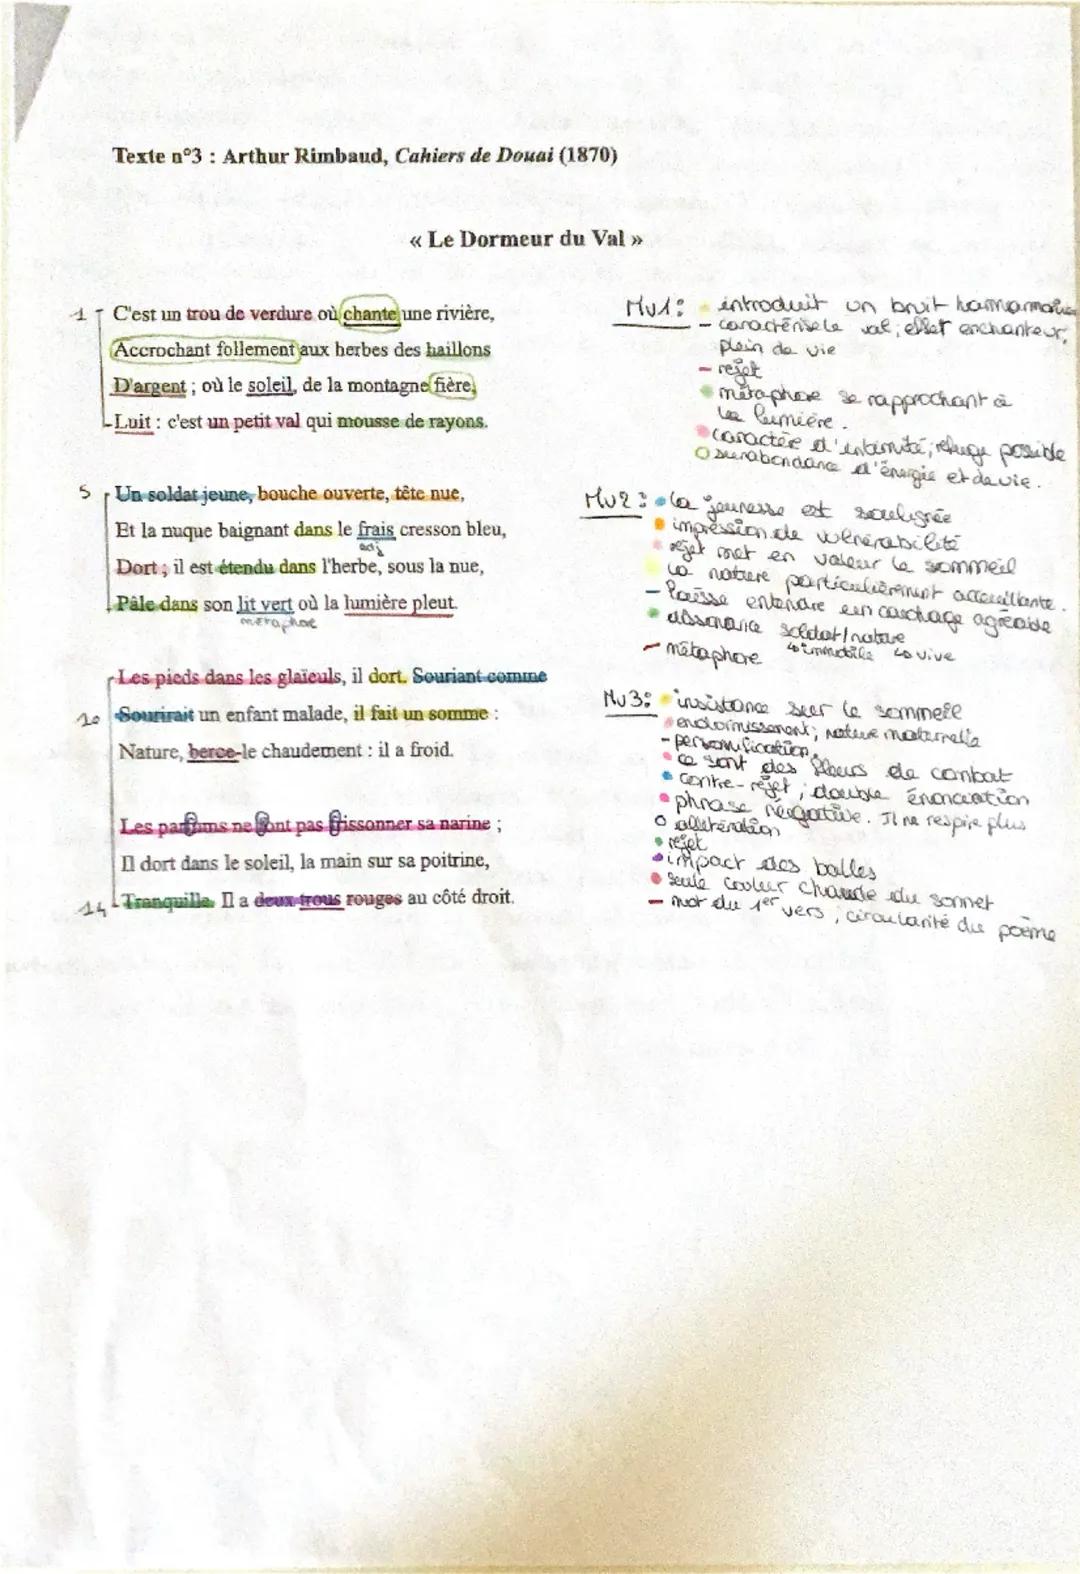 Texte n°3 : Arthur Rimbaud, Cahiers de Douai (1870)
« Le Dormeur du Val »
1 C'est un trou de verdure où chante une rivière,
Accrochant follement aux herbes des haillons
D'argent ; où le soleil, de la montagne fière,
Luit : c'est un petit val qui mousse de rayons.
5 Un soldat jeune, bouche ouverte, tête nue,
Et la nuque baignant dans le frais cresson bleu,
adj
Dort ; il est étendu dans l'herbe, sous la nue,
Pâle dans son lit vert où la lumière pleut.
métaphore
Les pieds dans les glaïeuls, il dort. Souriant comme
10 Sourirait un enfant malade, il fait un somme :
Nature, berce-le chaudement : il a froid.
Les parfums ne font pas frissonner sa narine ;
Il dort dans le soleil, la main sur sa poitrine,
14 Tranquille. Il a deux trous rouges au côté droit.
Mv1: introduit un bruit
- caractérise le val ; effet enchanteur,
plein de vie
- rejet
métaphore se rapprochant à
la lumière.
caractère d'intimité ; refuge possible
surabondance d'énergie et de vie.
Mv2 : la jeunesse est soulignée
impression de vulnérabilité
rejet met en valeur le sommeil
La nature particulièrement accueillante.
- laisse entendre un couchage agréable
assonance soldat/nature
↳ immobile ↳ vive
- métaphore
Mv3: insistance sur le sommeil
endormissement ; nature maternelle
- personnification
ce sont des fleurs de combat
contre-rejet ; double énonciation
phrase négative. Il ne respire plus
allitération
rejet
impact des balles
seule couleur chaude du sonnet
- mot du 1er vers ; circularité du poème